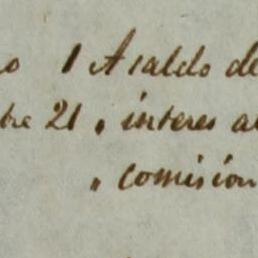 o 1 A saldo de
bre 21 " interes a
" comision